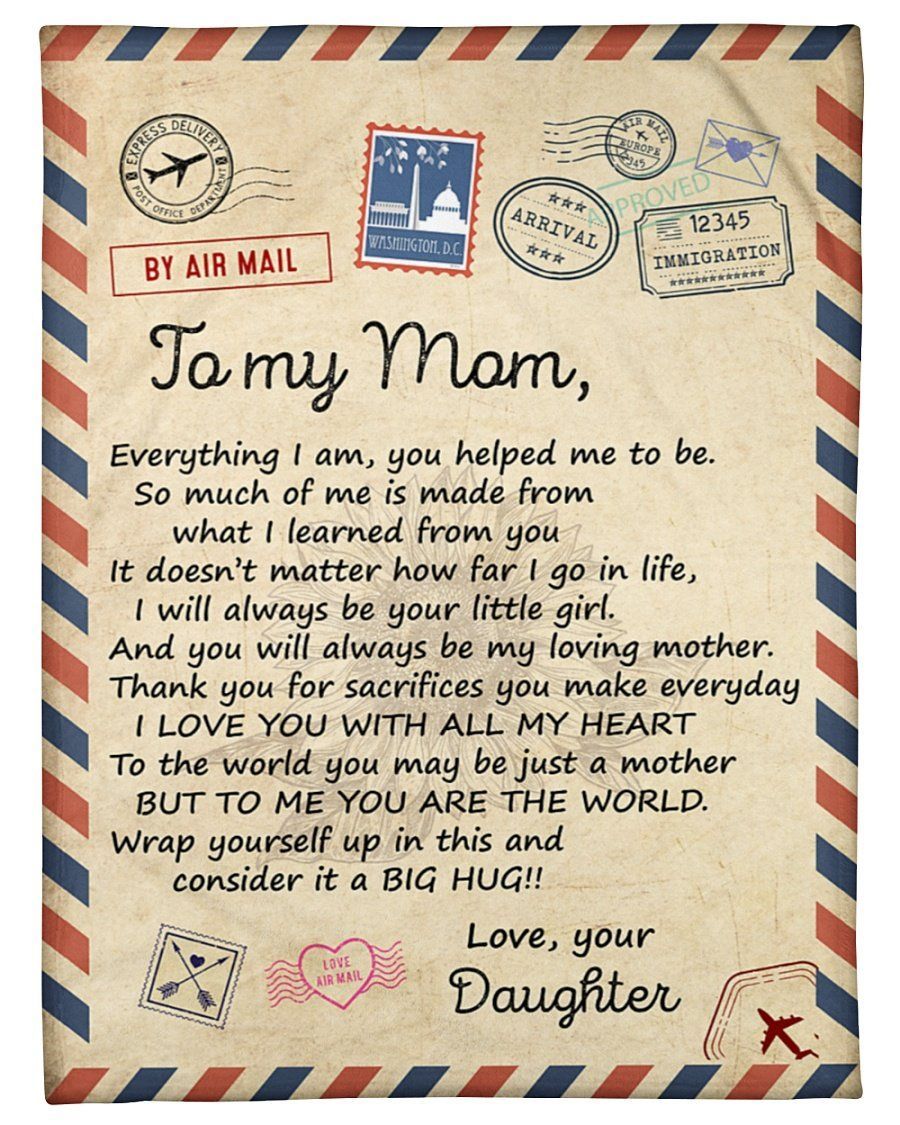 EXPRESS DELIVERY
POST OFFICE DEPARTMENT
BY AIR MAIL
WASHINGTON, D.C.
AIR MAIL
EUROPE
12345
APPROVED
ARRIVAL
12345
IMMIGRATION
To my Mom,
Everything I am, you helped me to be.
So much of me is made from
what I learned from you
It doesn't matter how far I go in life,
I will always be your little girl.
And you will always be my loving mother.
Thank you for sacrifices you make everyday
I LOVE YOU WITH ALL MY HEART
To the world you may be just a mother
BUT TO ME YOU ARE THE WORLD.
Wrap yourself up in this and
consider it a BIG HUG!!
LOVE
AIR MAIL
Love, your
Daughter